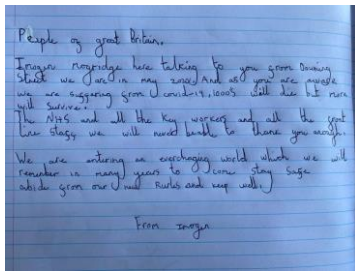 People of great Britain.
Imogen Mogridge here talking to you from Downing
Street we are in may 2020. And as you are aware
we are suffering from covid-19, 1000s will die but more
will Survive.
The NHS and all the Key workers and all the front
line staff we will never be able to thank you enough.
We are entering an everchanging world which we will
remember in many years to come stay safe
abide from our new Rules and keep well.
From imogen